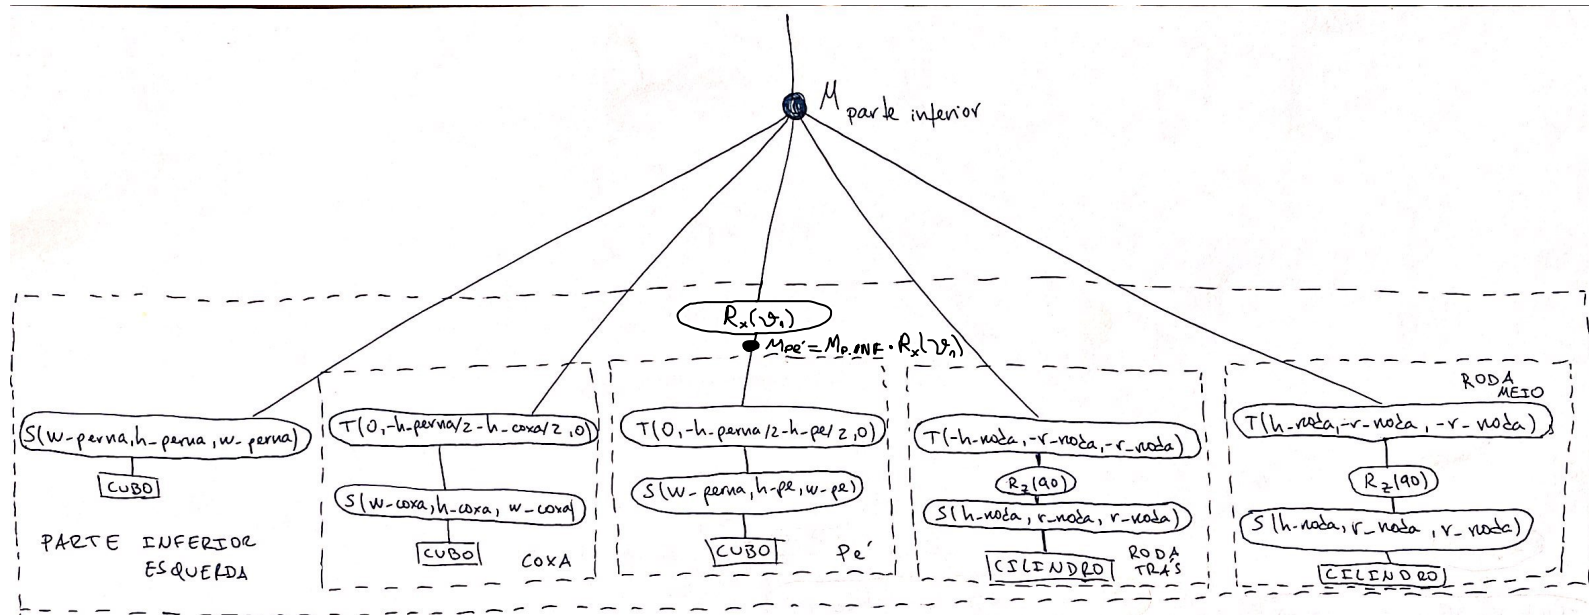 M parte inferior
Rx(θ₁)
Mpé = MP.INF · Rx(θ₁)
S(w-perna, h-perna, w-perna)
CUBO
PARTE INFERIOR
ESQUERDA
T(0, -h-perna/2-h-coxa/2, 0)
S(w-coxa, h-coxa, w-coxa)
CUBO
COXA
T(0, -h-perna/2-h-pe/2, 0)
S(w-perna, h-pe, w-pe)
CUBO
Pé
T(-h-roda, -r-roda, -r-roda)
Rz(90)
S(h-roda, r-roda, r-roda)
CILINDRO
RODA
TRÁS
RODA
MEIO
T(h-roda, -r-roda, -r-roda)
Rz(90)
S(h-roda, r-roda, r-roda)
CILINDRO